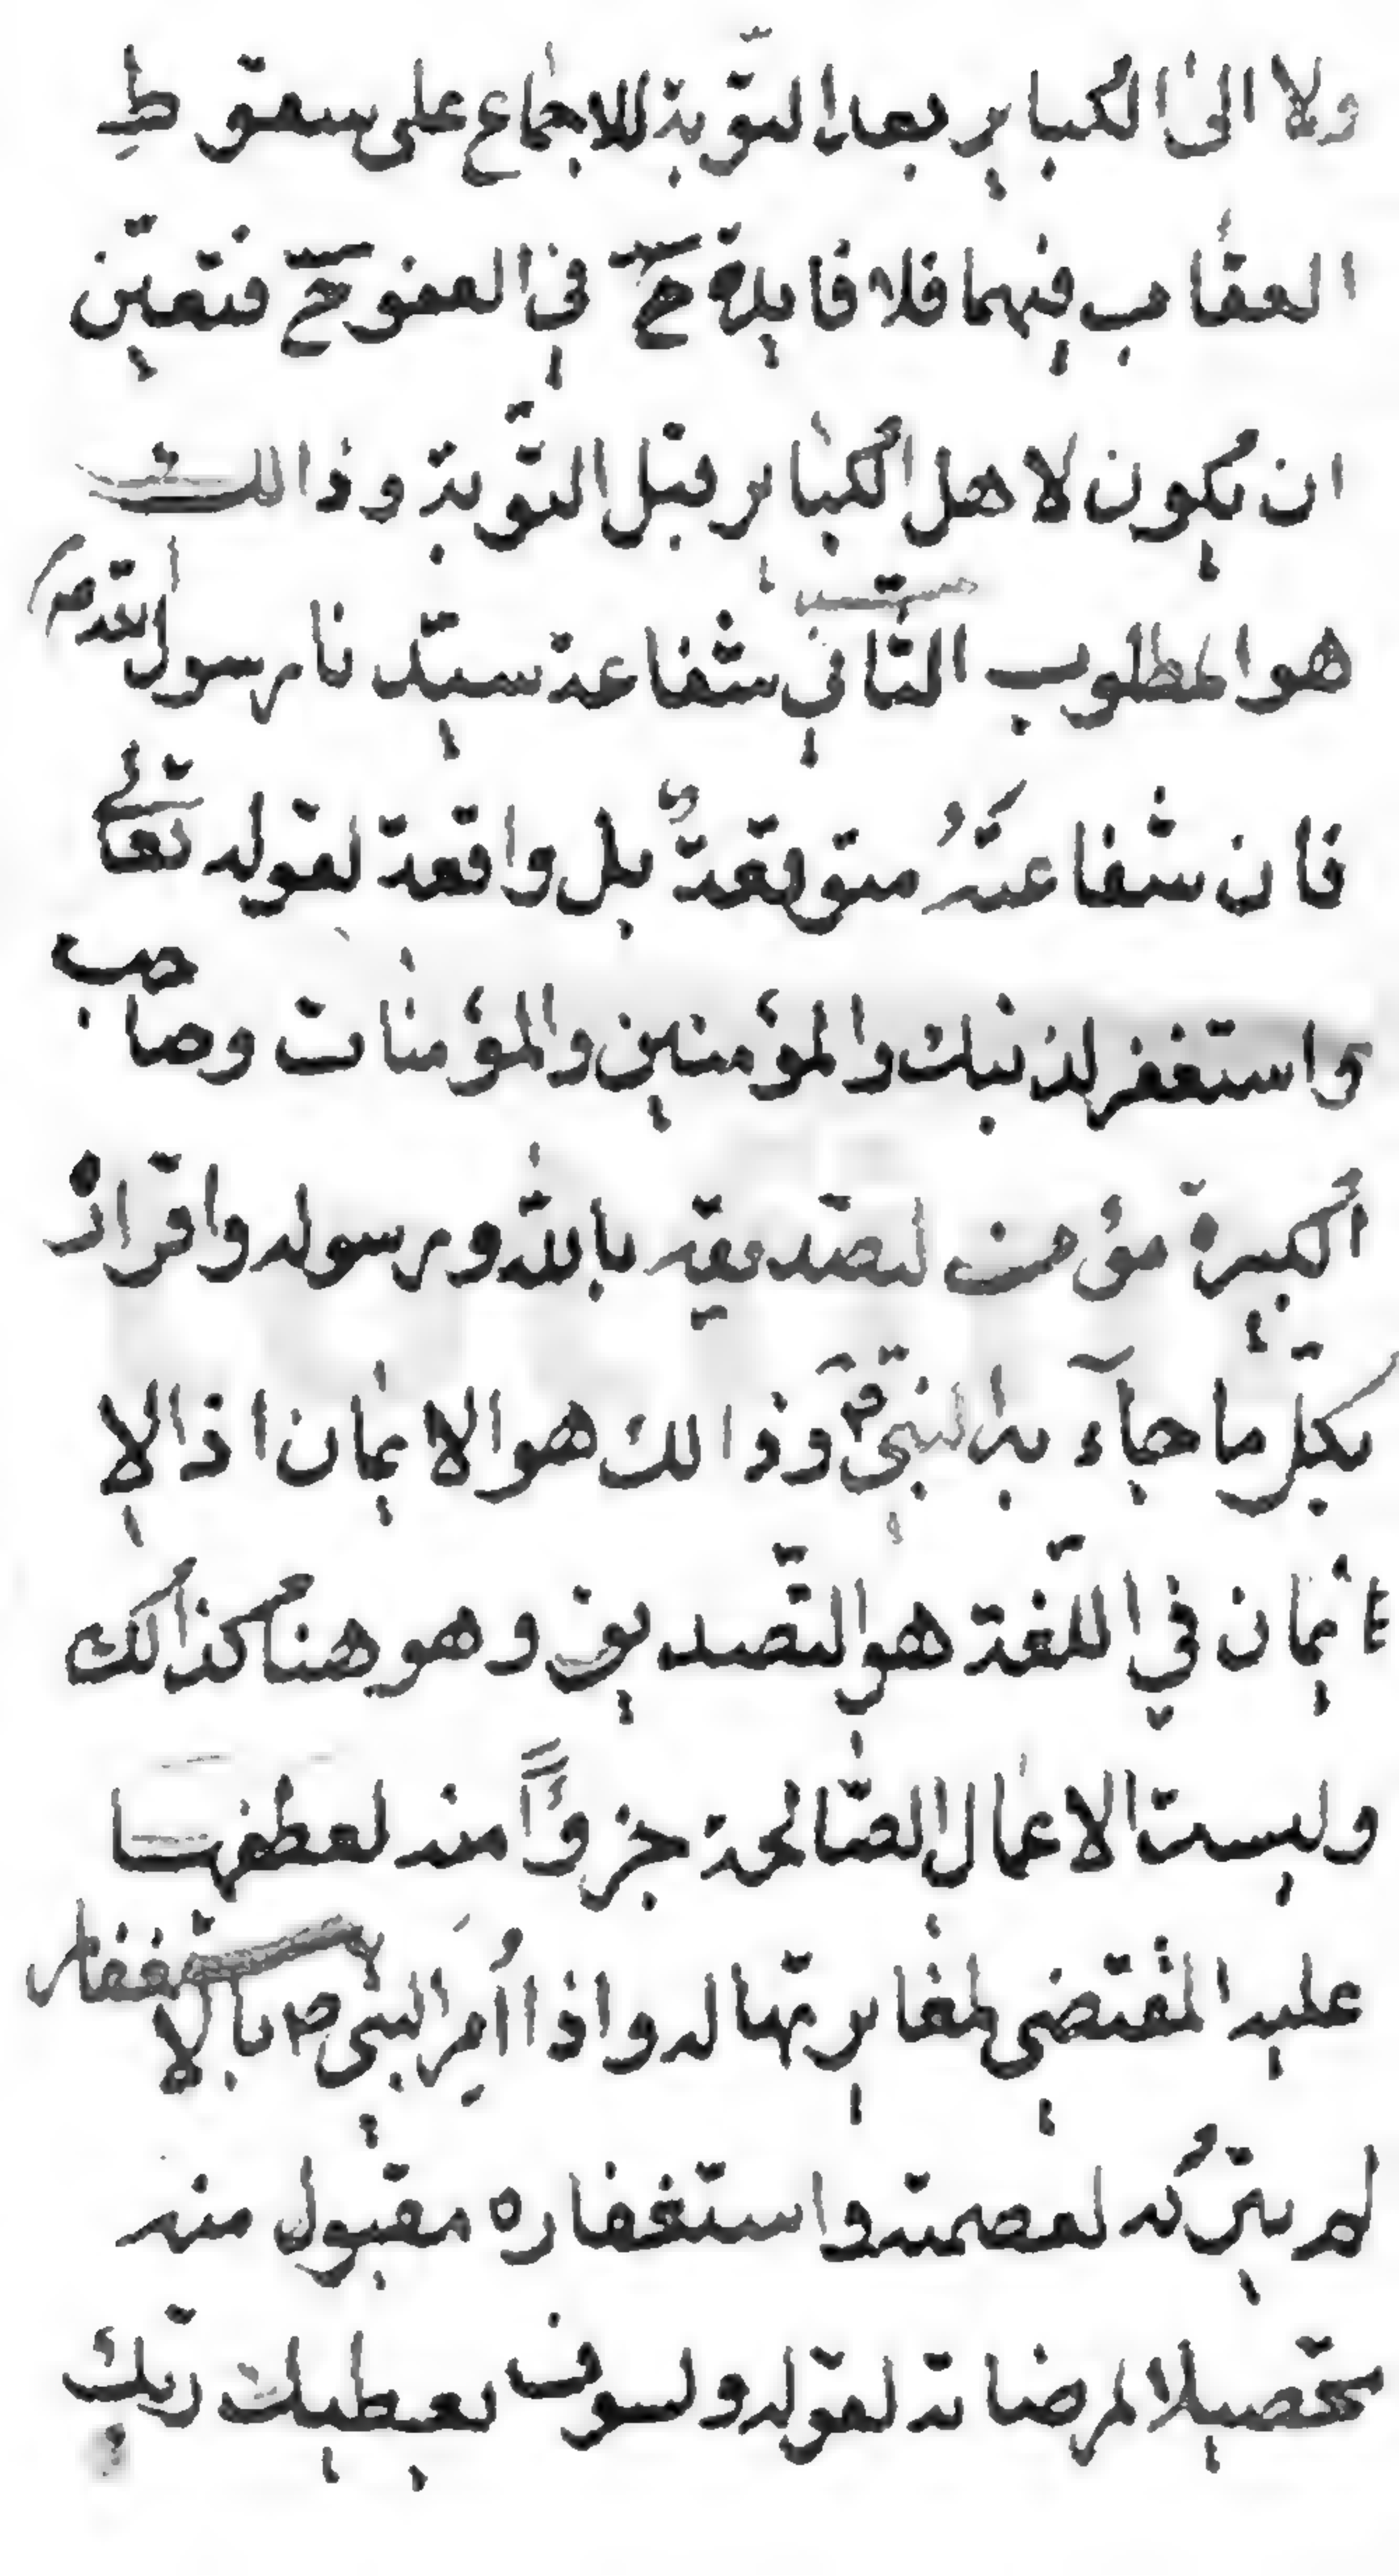 ولا الى الكباير بعد التوبة للاجماع على سقوط
العقاب فيهما فلا فايدة ح في العفو ح فتعين
ان يكون لاهل الكباير قبل التوبة وذالك
هو المطلوب الثاني شفاعة سيدنا رسول الله ص
فان شفاعته متوقعة بل واقعة لقوله تعالى
واستغفر لذنبك والمؤمنين والمؤمنات وصاحب
الكبيرة مؤمن لتصديقه بالله ورسوله واقراره
بكل ما جآء به النبي ص وذالك هو الايمان اذ الا
يمان في اللغة هو التصديق وهو هنا كذالك
وليست الاعمال الصالحة جزوًا منه لعطفها
عليه المقتضى لمغايرتها له واذا أمر النبي ص بالاستغفار
لم يتركه لعصمته واستغفاره مقبول منه
تحصيلا لمرضاته لقوله ولسوف يعطيك ربك